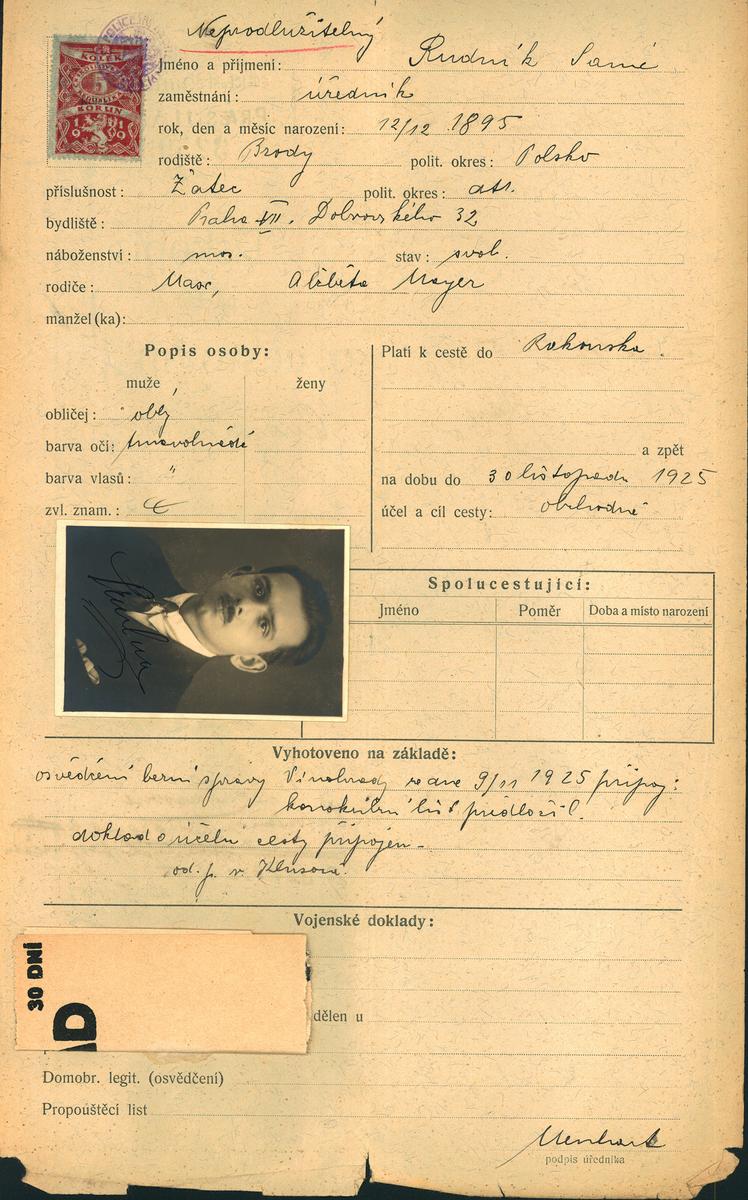 Neprodlužitelný
KOLEK
5
KORUN
1919
Jméno a příjmení: Rudník Samé
zaměstnání: úředník
rok, den a měsíc narození: 12/12 1895
rodiště: Brody polit. okres: Polsko
příslušnost: Žatec polit. okres: dtt.
bydliště: Praha VII. Dobrovského 32
náboženství: mos. stav: svob.
rodiče: Marc, Alžběta Mayer
manžel(ka):
Popis osoby:
muže ženy
obličej: oblý
barva očí: tmavohnědé
barva vlasů: "
zvl. znam.:
Platí k cestě do Rakouska.
a zpět
na dobu do 30 listopadu 1925
účel a cíl cesty: obchodně
Spolucestující:
Jméno Poměr Doba a místo narození
Vyhotoveno na základě:
osvědčení berní správy Vinohrady ze dne 9/11 1925 připoj:
konskribční list předložil.
doklad o účelu cesty připojen
od. p. r.
Vojenské doklady:
30 DNÍ
dělen u
Domobr. legit. (osvědčení)
Propouštěcí list
podpis úředníka